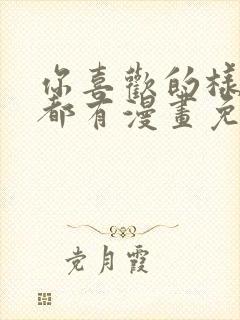 你喜歡的樣
都有漫畫免
党月霞